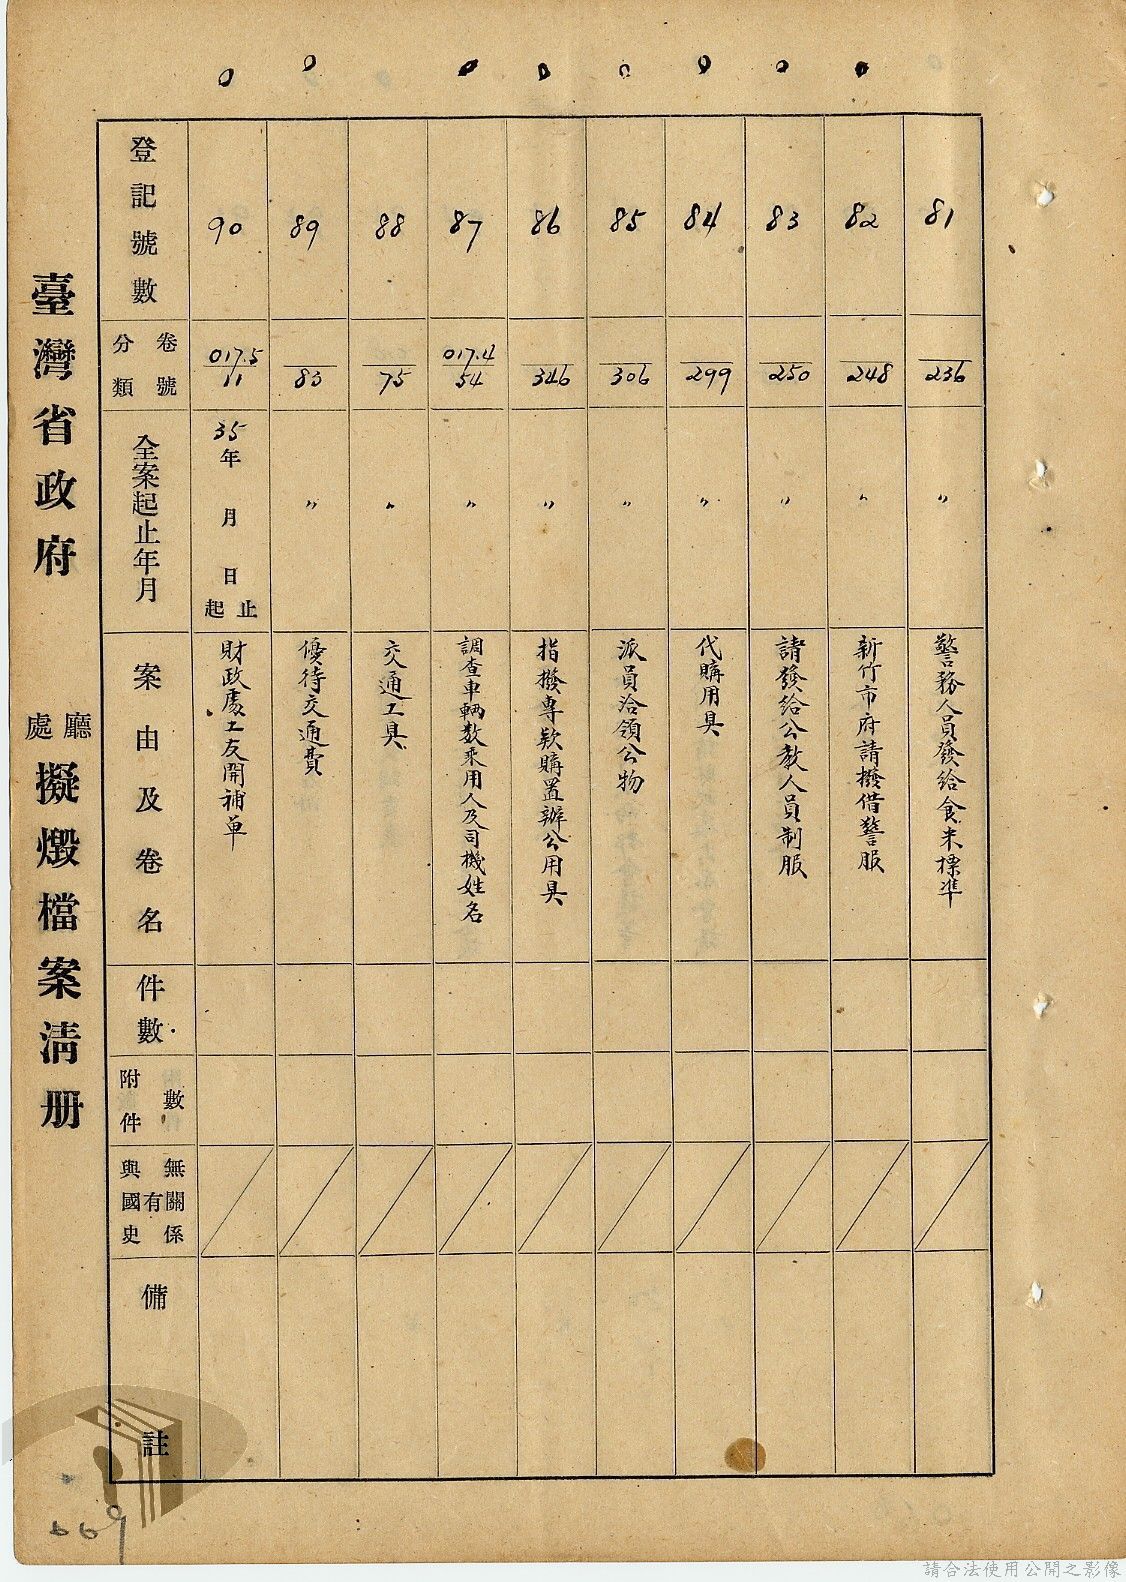 臺灣省政府 廳處 擬燬檔案淸册
登記號數
分類 卷號
全案起止年月
案由及卷名
件數
附件數
與國史有無關係
備註
81
236
〃
警務人員發給食米標準
82
248
〃
新竹市府請撥借警服
83
250
〃
請發給公教人員制服
84
299
〃
代購用具
85
306
〃
派員洽領公物
86
346
〃
指撥專欵購置辦公用具
87
017.4
54
〃
調查車輛数乘用人及司機姓名
88
75
〃
交通工具
89
83
〃
優待交通費
90
017.5
11
35年 月 日 起止
財政處工友開補单
669
請合法使用公開之影像